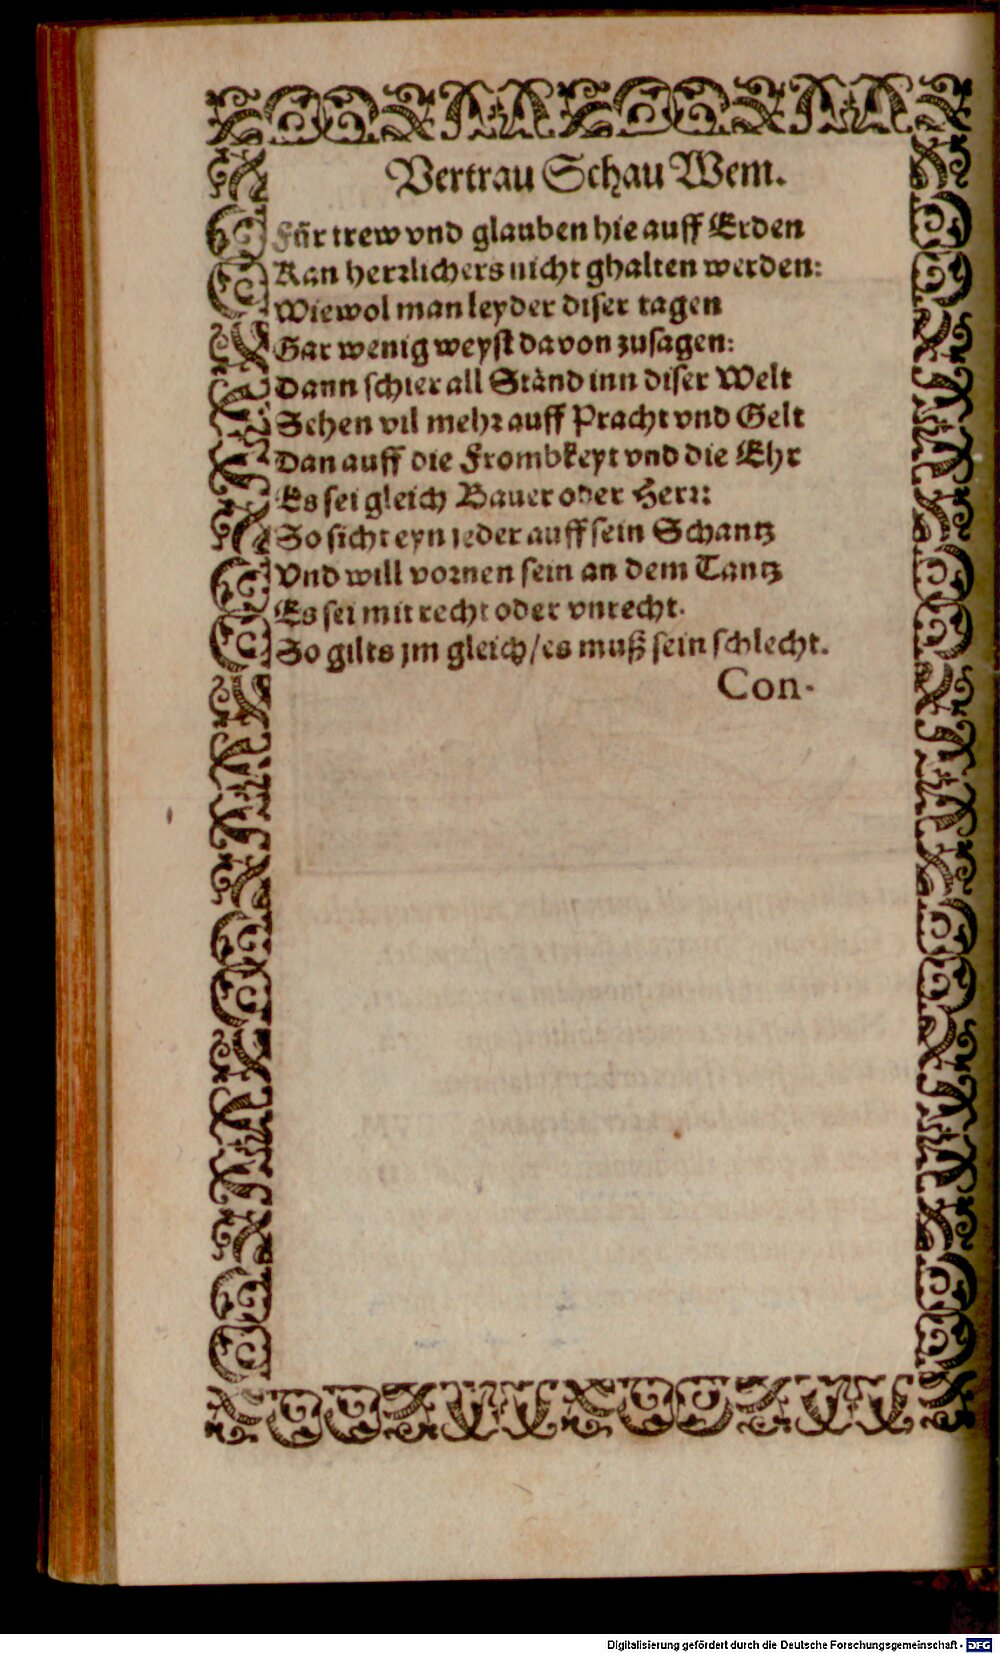 Vertrau Schau Wem.
Für trew vnd glauben hie auff Erden
Kan herrlichers nicht ghalten werden:
Wiewol man leyder diser tagen
Gar wenig weyst davon zusagen:
Dann schier all Ständ inn diser Welt
Sehen vil mehr auff Pracht vnd Gelt
Dan auff die Frombkeyt vnd die Ehr
Es sei gleich Bauer oder Herr:
So sicht eyn ieder auff sein Schantz
Vnd will vornen sein an dem Tantz
Es sei mit recht oder vnrecht.
So gilts jm gleich/es muß sein schlecht.
Con-
Digitalisierung gefördert durch die Deutsche Forschungsgemeinschaft - DFG